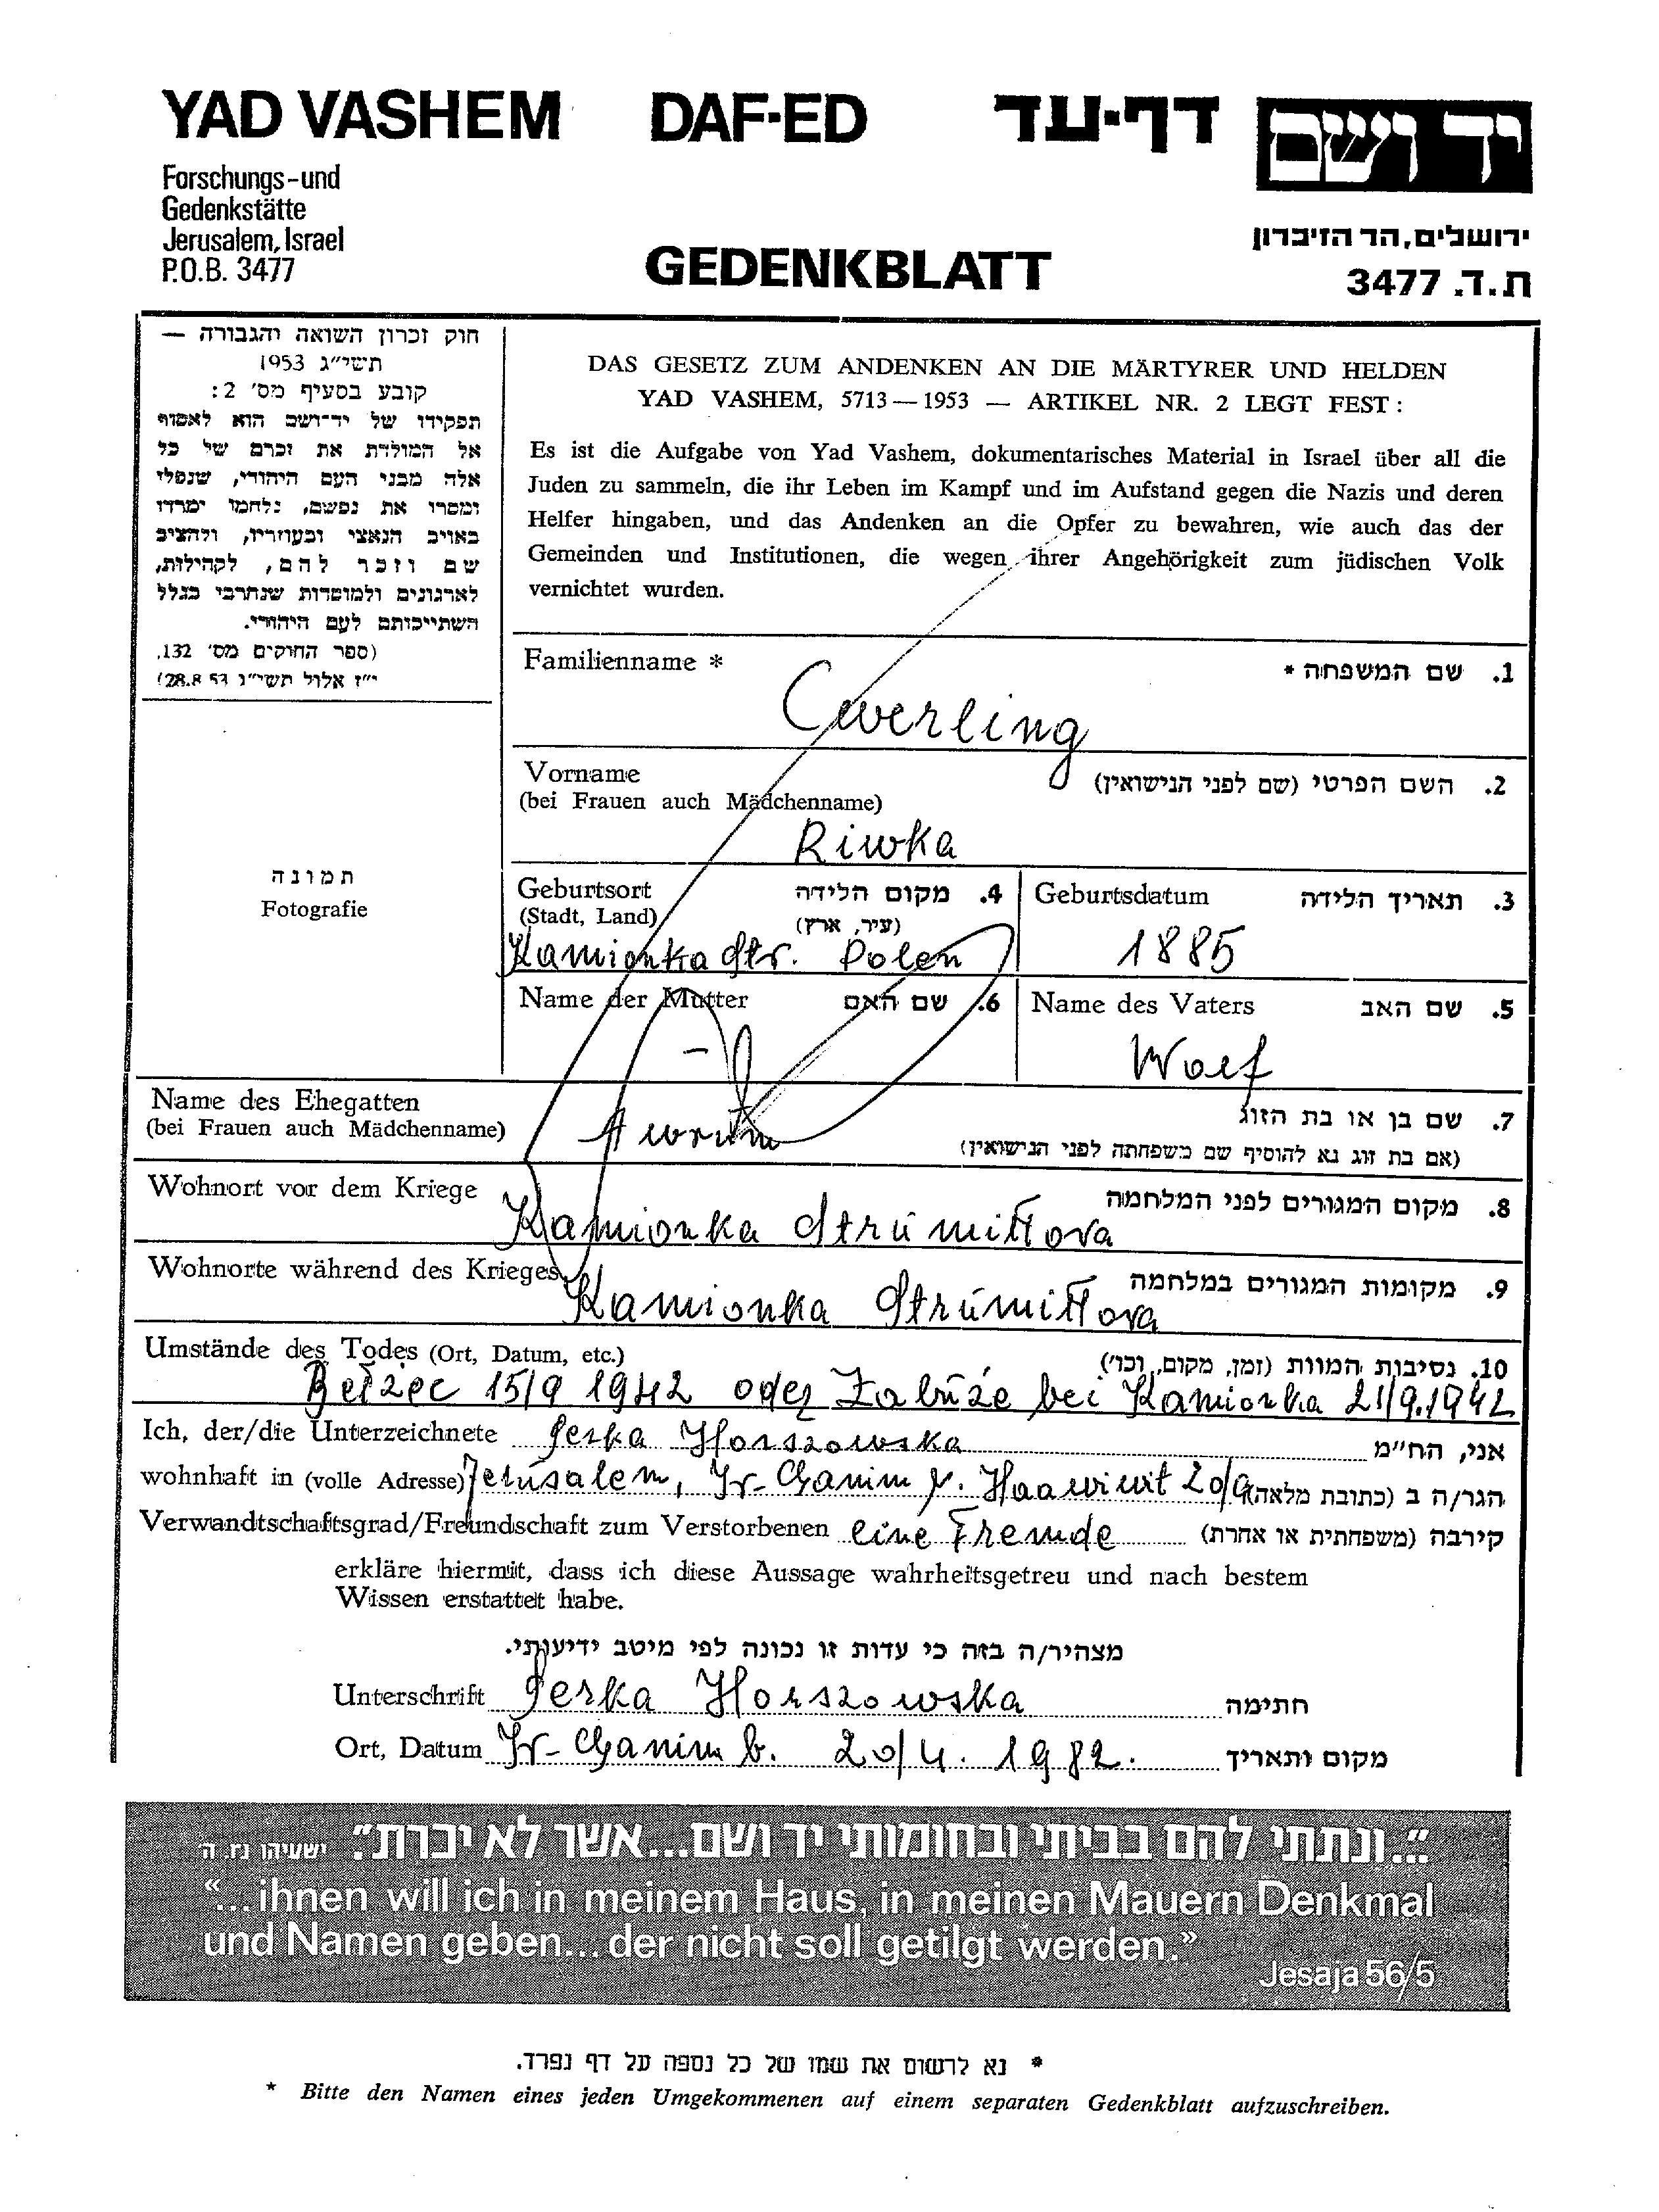 YAD VASHEM DAF-ED דף-עד יד ושם
Forschungs-und
Gedenkstätte
Jerusalem, Israel
P.O.B. 3477
ירושלים, הר הזיכרון
ת.ד. 3477
GEDENKBLATT
חוק זכרון השואה והגבורה —
תשי״ג 1953
קובע בסעיף מס׳ 2:
תפקידו של יד־ושם הוא לאסוף
אל המולדת את זכרם של כל
אלה מבני העם היהודי, שנפלו
ומסרו את נפשם, נלחמו ומרדו
באויב הנאצי ובעוזריו, ולהציב
שם וזכר להם, לקהילות,
לארגונים ולמוסדות שנחרבו בגלל
השתייכותם לעם היהודי.
(ספר החוקים מס׳ 132,
י״ז אלול תשי״ג 28.8.53)
DAS GESETZ ZUM ANDENKEN AN DIE MÄRTYRER UND HELDEN
YAD VASHEM, 5713—1953 — ARTIKEL NR. 2 LEGT FEST:
Es ist die Aufgabe von Yad Vashem, dokumentarisches Material in Israel über all die
Juden zu sammeln, die ihr Leben im Kampf und im Aufstand gegen die Nazis und deren
Helfer hingaben, und das Andenken an die Opfer zu bewahren, wie auch das der
Gemeinden und Institutionen, die wegen ihrer Angehörigkeit zum jüdischen Volk
vernichtet wurden.
תמונה
Fotografie
Familienname * 1. שם המשפחה *
Cwerling
Vorname 2. השם הפרטי (שם לפני הנישואין)
(bei Frauen auch Mädchenname)
Riwka
Geburtsort 4. מקום הלידה Geburtsdatum 3. תאריך הלידה
(Stadt, Land) (עיר, ארץ)
Kamionka Str. Polen 1885
Name der Mutter 6. שם האם Name des Vaters 5. שם האב
— Wolf
Name des Ehegatten 7. שם בן או בת הזוג
(bei Frauen auch Mädchenname) Awrum (אם בת זוג נא להוסיף שם משפחתה לפני הנישואין)
Wohnort vor dem Kriege 8. מקום המגורים לפני המלחמה
Kamionka Strumiłłova
Wohnorte während des Krieges 9. מקומות המגורים במלחמה
Kamionka Strumiłłova
Umstände des Todes (Ort, Datum, etc.) 10. נסיבות המוות (זמן, מקום, וכו׳)
Bełżec 15/9 1942 oder Zabuże bei Kamionka 21/9.1942
Ich, der/die Unterzeichnete Perka Horszowska אני, הח״מ
wohnhaft in (volle Adresse) Jerusalem, Ir-Ganim הגר/ה ב (כתובת מלאה)
Verwandtschaftsgrad/Freundschaft zum Verstorbenen eine Fremde קירבה (משפחתית או אחרת)
erkläre hiermit, dass ich diese Aussage wahrheitsgetreu und nach bestem
Wissen erstattet habe.
מצהיר/ה בזה כי עדות זו נכונה לפי מיטב ידיעותי.
Unterschrift Perka Horszowska חתימה
Ort, Datum Ir-Ganim b. 20/4. 1982. מקום ותאריך
"...ונתתי להם בביתי ובחומותי יד ושם...אשר לא יכרת". ישעיהו נו. ה
"...ihnen will ich in meinem Haus, in meinen Mauern Denkmal
und Namen geben... der nicht soll getilgt werden."
Jesaja 56/5
* נא לרשום את שמו של כל נספה על דף נפרד.
* Bitte den Namen eines jeden Umgekommenen auf einem separaten Gedenkblatt aufzuschreiben.